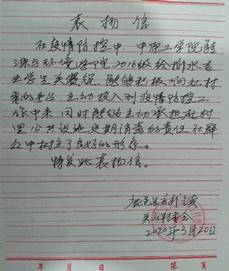 表扬信
在疫情防控中 中原工学院能
源与环境学院2016级给排水专
业学生 能够积极响应村
委的号召 主动投入到疫情防控工
作中来 同时能够主动承担起村
里公共设施定期消毒的责任 在群
众中树立了良好的形象。
特发此表扬信。
村委会
2020年3月20日
年 月 日 第 页